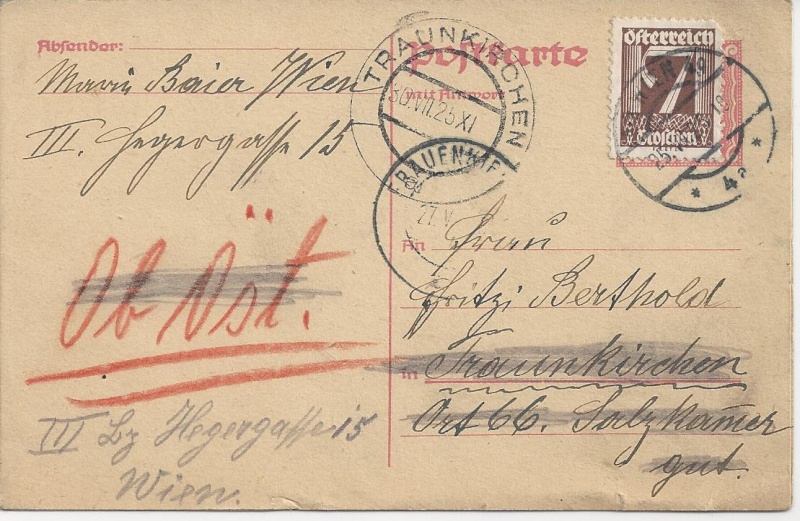 Absender:
Marie Baier Wien
III. Hegergasse 15
Postkarte
mit Antwort
TRAUNKIRCHEN
30.VII.25 XI
Österreich
7
Groschen
* 4a *
RAUENKI
27.V
An Frau
Fritzi Berthold
in Traunkirchen
Ort 66. Salzkam̄er
gut.
Ob Öst.
III Bz Hegergasse 15
Wien.